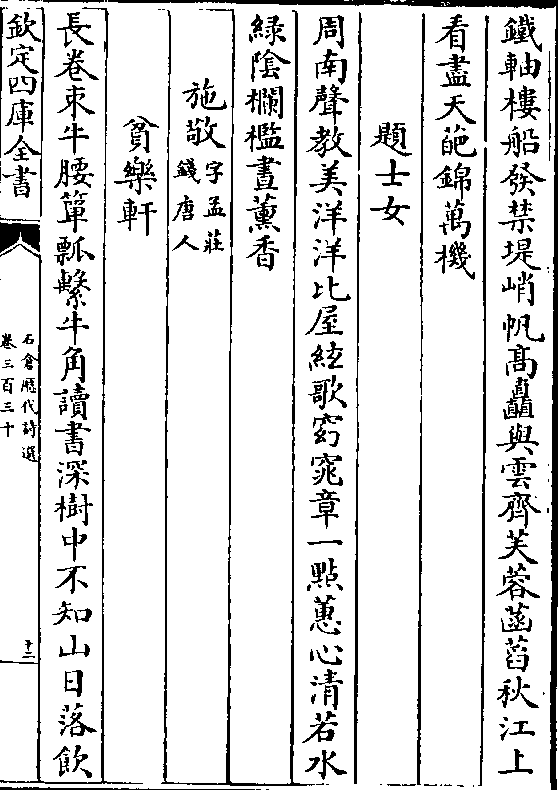 鐵軸樓船發禁堤峭帆髙矗與雲齊芙蓉菡萏秋江上
看盡天葩錦萬機
題士女
周南聲教美洋洋比屋絃歌窈窕章一點蕙心清若水
綠陰欄檻晝薰香
施敬字孟莊錢唐人
貧樂軒
長卷束牛腰簞瓢繫牛角讀書深樹中不知山日落飲
欽定四庫全書
石倉歴代詩選
卷三百三十
十二